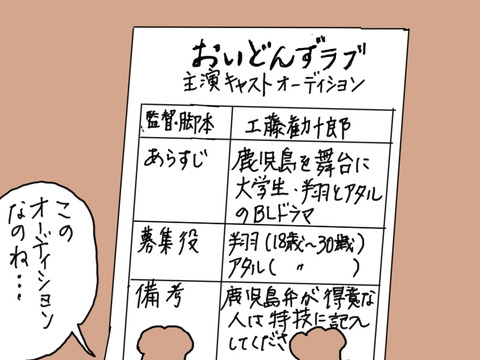 おいどんずラブ
主演キャストオーディション
監督・脚本
工藤勧十郎
あらすじ
鹿児島を舞台に
大学生・翔羽とアタル
のBLドラマ
募集役
翔羽(18歳〜30歳)
アタル( 〃 )
備考
鹿児島弁が得意な
人は特技に記入
してくださ
この
オーディション
なのね…